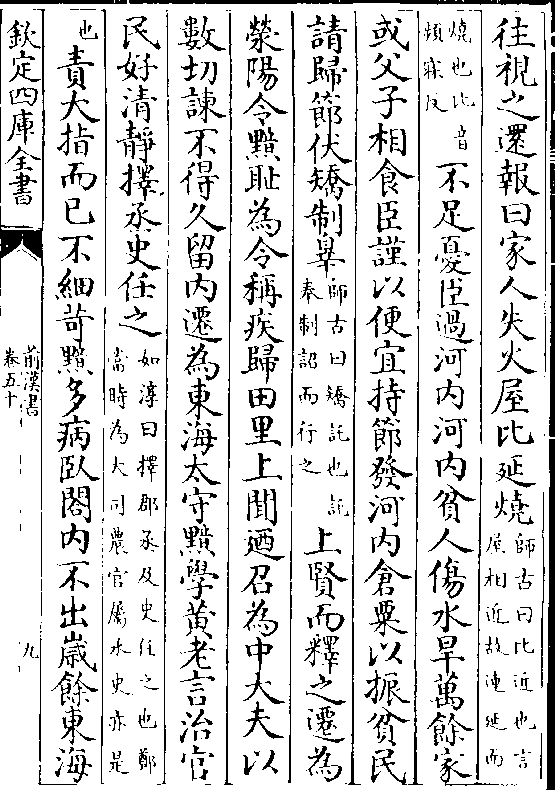 往視之還報曰家人失火屋比延燒師古曰比近也言屋相近故連延而
燒也比音頻寐反不足憂臣過河内河内貧人傷水旱萬餘家
或父子相食臣謹以便宜持節發河内倉粟以振貧民
請歸節伏矯制辠師古曰矯託也託奉制詔而行之上賢而釋之遷為
滎陽令黯恥為令稱疾歸田里上聞迺召為中大夫以
數切諫不得久留内遷為東海太守黯學黄老言治官
民好清靜擇丞史任之如淳曰擇郡丞及史任之也鄭當時為大司農官屬水史亦是
也責大指而已不細苛黯多病臥閤内不出嵗餘東海
欽定四庫全書
前漢書
卷五十
九